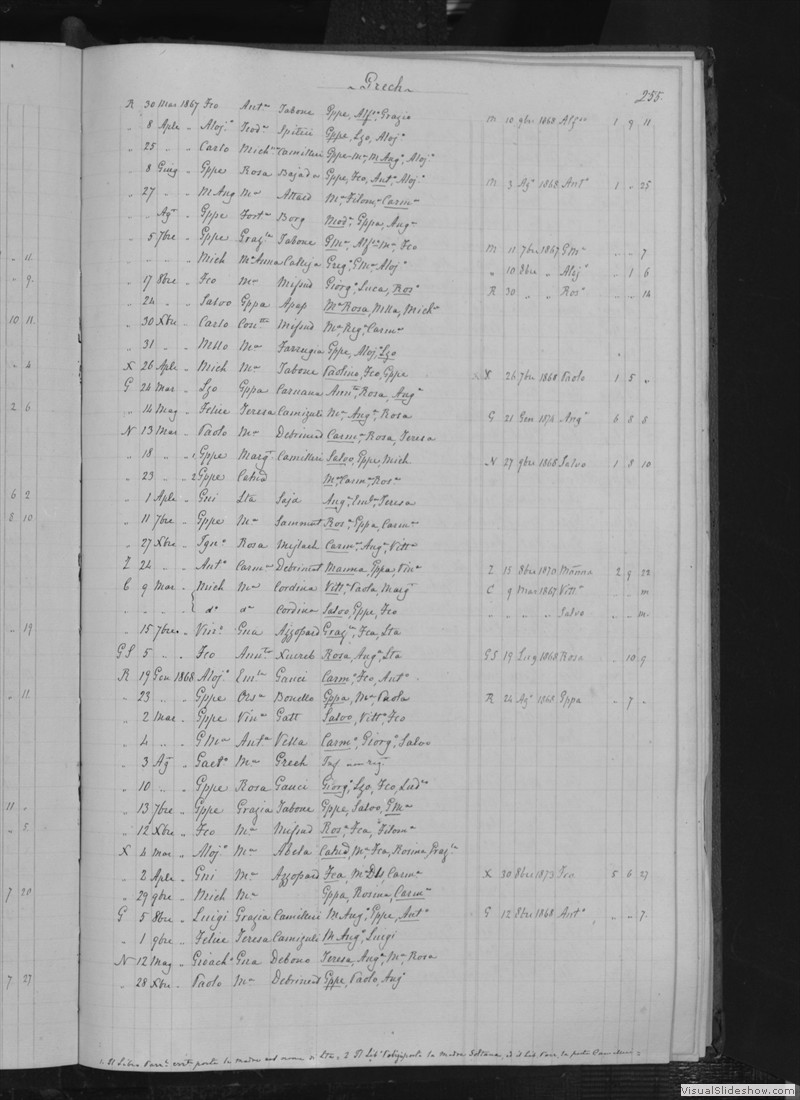 Grech
255.
R 30 Mar 1867 Fco Anta Tabone Gppe, Alfo, Grazio M 10 9bre 1868 Alfo 1 9 11
„ 8 Aple „ Alojo Teoda Spiteri Gppe, Lzo, Alojo
„ 25 „ „ Carlo Micha Camilleri Gppe Ma, M Ango, Alojo
„ 8 Giug „ Gppe Rosa Bajada Gppe, Fco, Anto, Alojo M 3 Ago 1868 Anto 1 „ 25
„ 27 „ „ M Ang Ma Attard Ma, Filoma, Carma
„ „ Ag „ Gppe Forta Borg Modo, Gppa, Ango
11. „ 5 7bre „ Gppe Grazla Tabone GMa, Alfo, Ma, Fco M 11 7bre 1867 GMa „ „ 7
„ „ „ Mich Ma Anna Calleja Grego, GMa, Alojo „ 10 8bre „ Alojo „ 1 6
9. „ 17 8bre „ Fco Ma Mifsud Giorgo, Luca, Roso R 30 „ „ Roso „ „ 14
„ 24 „ „ Salvo Gppa Apap Ma Rosa, Mlla, Micha
10 11. „ 30 Xbre „ Carlo Mifsud Ma, Carma
„ 31 „ „ Mllo Ma Farrugia Gppe, Alojo, Lzo
„ 4 X 26 Aple „ Mich Ma Tabone Paolino, Fco, Gppe X 26 7bre 1868 Paolo 1 5 „
G 24 Mar „ Lzo Gppa Caruana Rosa, Ango
2 6 „ 14 Mag „ Felice Teresa Camizuli Ma, Ango, Rosa G 21 Gen 1874 Ango 6 8 8
N 13 Mar „ Paolo Ma Debrincat Carma, Rosa, Teresa
„ 18 „ „ 1 Gppe Margta Camilleri Salvo, Gppe, Mich N 27 9bre 1868 Salvo 1 8 10
„ 23 „ „ 2 Gppe Catud Ma, Carma, Rosa
6 2 „ 1 Aple „ Gni Lta Said Ango, Teresa
8 10 „ 11 7bre „ Gppe Ma Sammut Roso, Gppa, Carma
„ 27 Xbre „ Igno Rosa Mejlach Carmo, Ango, Vitto
Z 24 „ „ Anto Carma Debrincat Manna, Gppa, Vina Z 15 8bre 1870 Manna 2 9 22
C 9 Mar „ Mich Ma Cordina Vitto, Paola, Margta C 9 Mar 1867 Vitto „ „ m
„ „ „ do do Cordina Salvo, Gppe, Fco „ „ „ „ Salvo „ „ m
„ 19 „ 15 7bre „ Vino Gna Azzopard Grazla, Fca, Lta
GS 5 „ „ Fco Xuereb Rosa, Anga, Lta GS 19 Lug 1868 Rosa „ 10 9
R 19 Gen 1868 Alojo Gauci Carmo, Fco, Anto
„ 11 „ 23 „ „ Gppe Orsa Bonello Gppa, Ma, Paola R 24 Ago 1868 Gppa „ 7 „
„ 2 Mar „ Gppe Vina Gatt Salvo, Vitto, Fco
„ 4 „ „ GMa Anta Vella Carmo, Giorgo, Salvo
„ 3 Ag „ Gaeto Ma Grech
„ 10 „ „ Gppe Rosa Gauci Giorgo, Lzo, Fco, Ludo
11 „ „ 13 7bre „ Gppe Grazia Tabone Gppe, Salvo, GMa
„ 5. „ 12 Xbre „ Fco Ma Mifsud Rosa, Fca, Filoma
X 4 Mar „ Alojo Ma Abela Catud, Ma, Fca, Rosina, Grazla
„ 2 Aple „ Gni Ma Azzopard Fca, Carma X 30 8bre 1873 Fca 5 6 27
7 20 „ 29 9bre „ Mich Ma Gppa, Rosina, Carma
G 5 8bre „ Luigi Grazia Camilleri M Ango, Gppe, Anto G 12 8bre 1868 Anto „ „ 7.
„ 1 9bre „ Felice Teresa Camizuli M Ango, Luigi
N 12 Mag „ Gioacho Gna Debono Teresa, Anga, Ma, Rosa
7 27 „ 28 Xbre „ Paolo Ma Debrincat Gppe, Paolo, Ang
VisualSlideshow.com